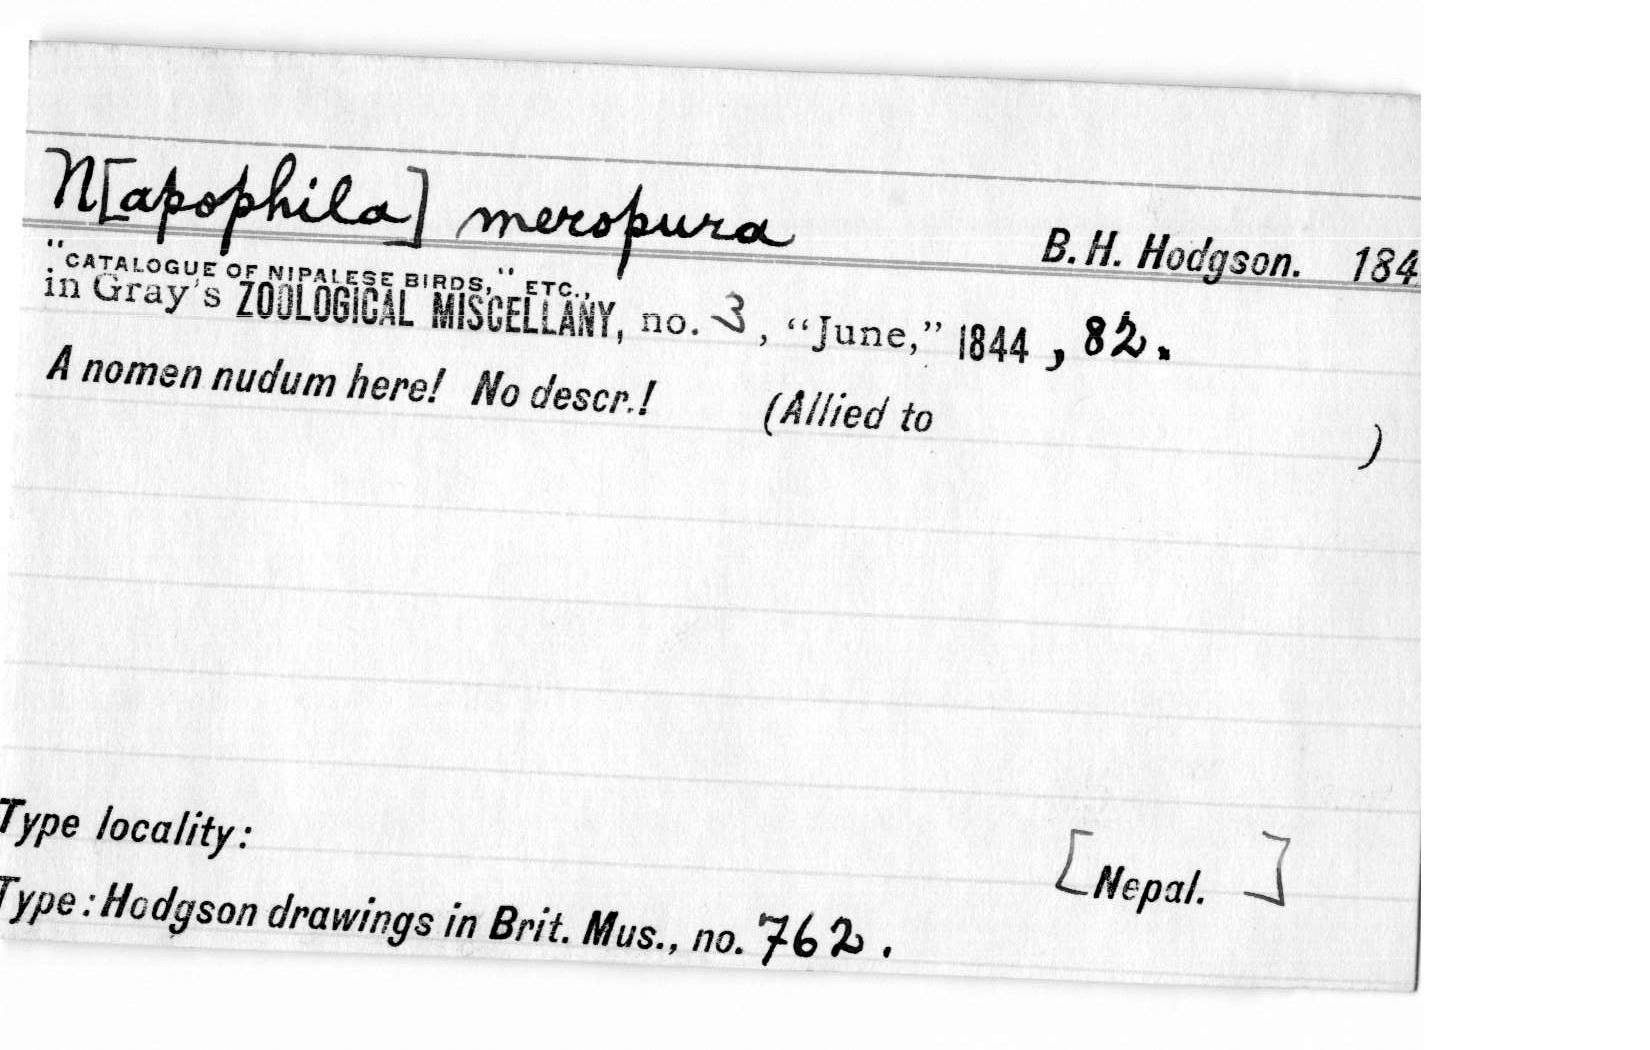 N[apophila] meropura
B. H. Hodgson. 184
"CATALOGUE OF NIPALESE BIRDS," ETC.,
in Gray's ZOOLOGICAL MISCELLANY, no. 3, “June,” 1844, 82.
A nomen nudum here! No descr.! (Allied to )
Type locality: [Nepal. ]
Type: Hodgson drawings in Brit. Mus., no. 762.